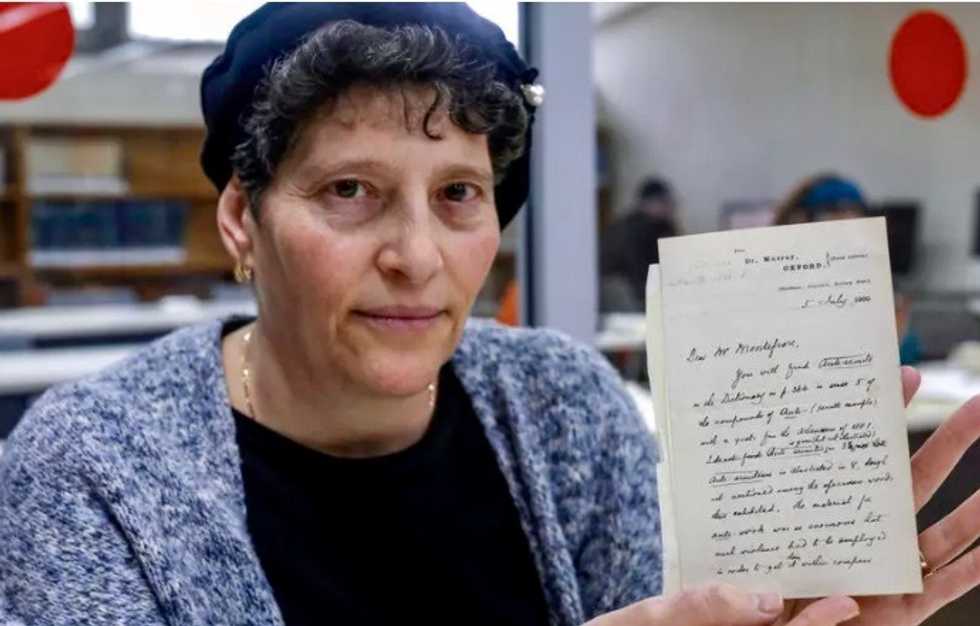 Dr. Murray,
OXFORD.
5 July, 1900
Dear Mr Montefiore,
You will find Anti-semite
in the Dictionary on p. 366 in sense 5 of
the compounds of Anti- (small example)
with a quot. from the Athenæum of 1881.
Anti-semitism is illustrated in 8, though
not mentioned among the words
The material for
anti- words was so enormous that
much violence had to be employed
in order to get it within compass